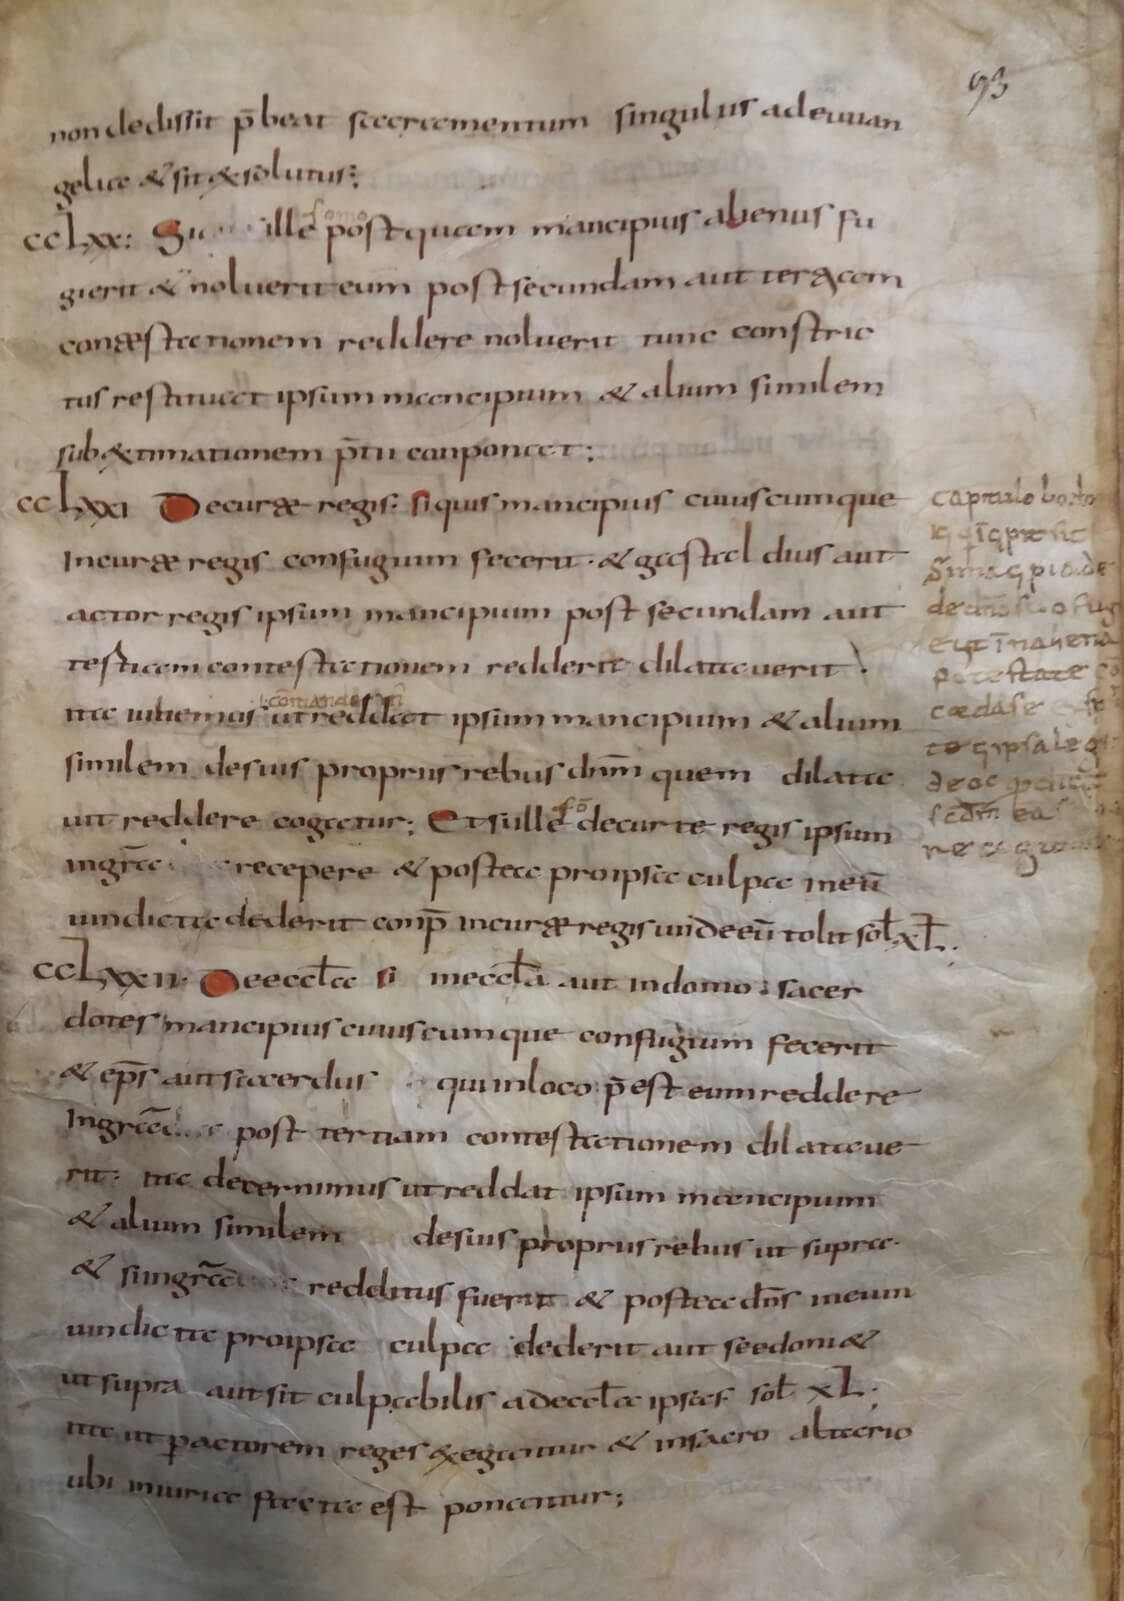 93
non dedissit p̄beat sacramentum singulus ad euuan
gelia & sit & solutus;
CCLXX: Si ille postquam mancipius alienus fu
gierit & noluerit eum post secundam aut terciam
contestationem reddere noluerit tunc constric
tus restituat ipsum mancipium & alium similem
sub &timationem p̄tii conponat;
CCLXXI De curte regis: si quis mancipius cuiuscumque
In curte regis confugium fecerit · & gastaldius aut
actor regis ipsum mancipium post secundam aut
testiam contestationem redderit dilatauerit
ita iubemus ut reddat ipsum mancipium & alium
similem de suis propriis rebus dnm̄ quem dilata
uit reddere cogatur; Et si ille de curte regis ipsum
in gr̄a recepere & postea pro ipsa culpa in eū
uindicta dederit conp̄ in curte regis unde eū tolit sol XL;
CCLXXII· De eccla si in eccla aut in domo sacer
dotes mancipius cuiuscumque confugium fecerit
& ep̄s aut sacerdus qui in loco p̄est eum reddere
In gr̄a post tertiam contestationem dilataue
rit· ita decernimus ut reddat ipsum mancipium
& alium similem de suis propriis rebus ut supra·
& si in gr̄a redditus fuerit & postea dn̄s in eum
uindicta pro ipsa culpa dederit aut se edoni&
ut supra aut sit culpabilis ad eccla ipsa sol XL;
ita ut p actorem reges exegantur & in sacro altario
ubi iniuria facta est ponantur;